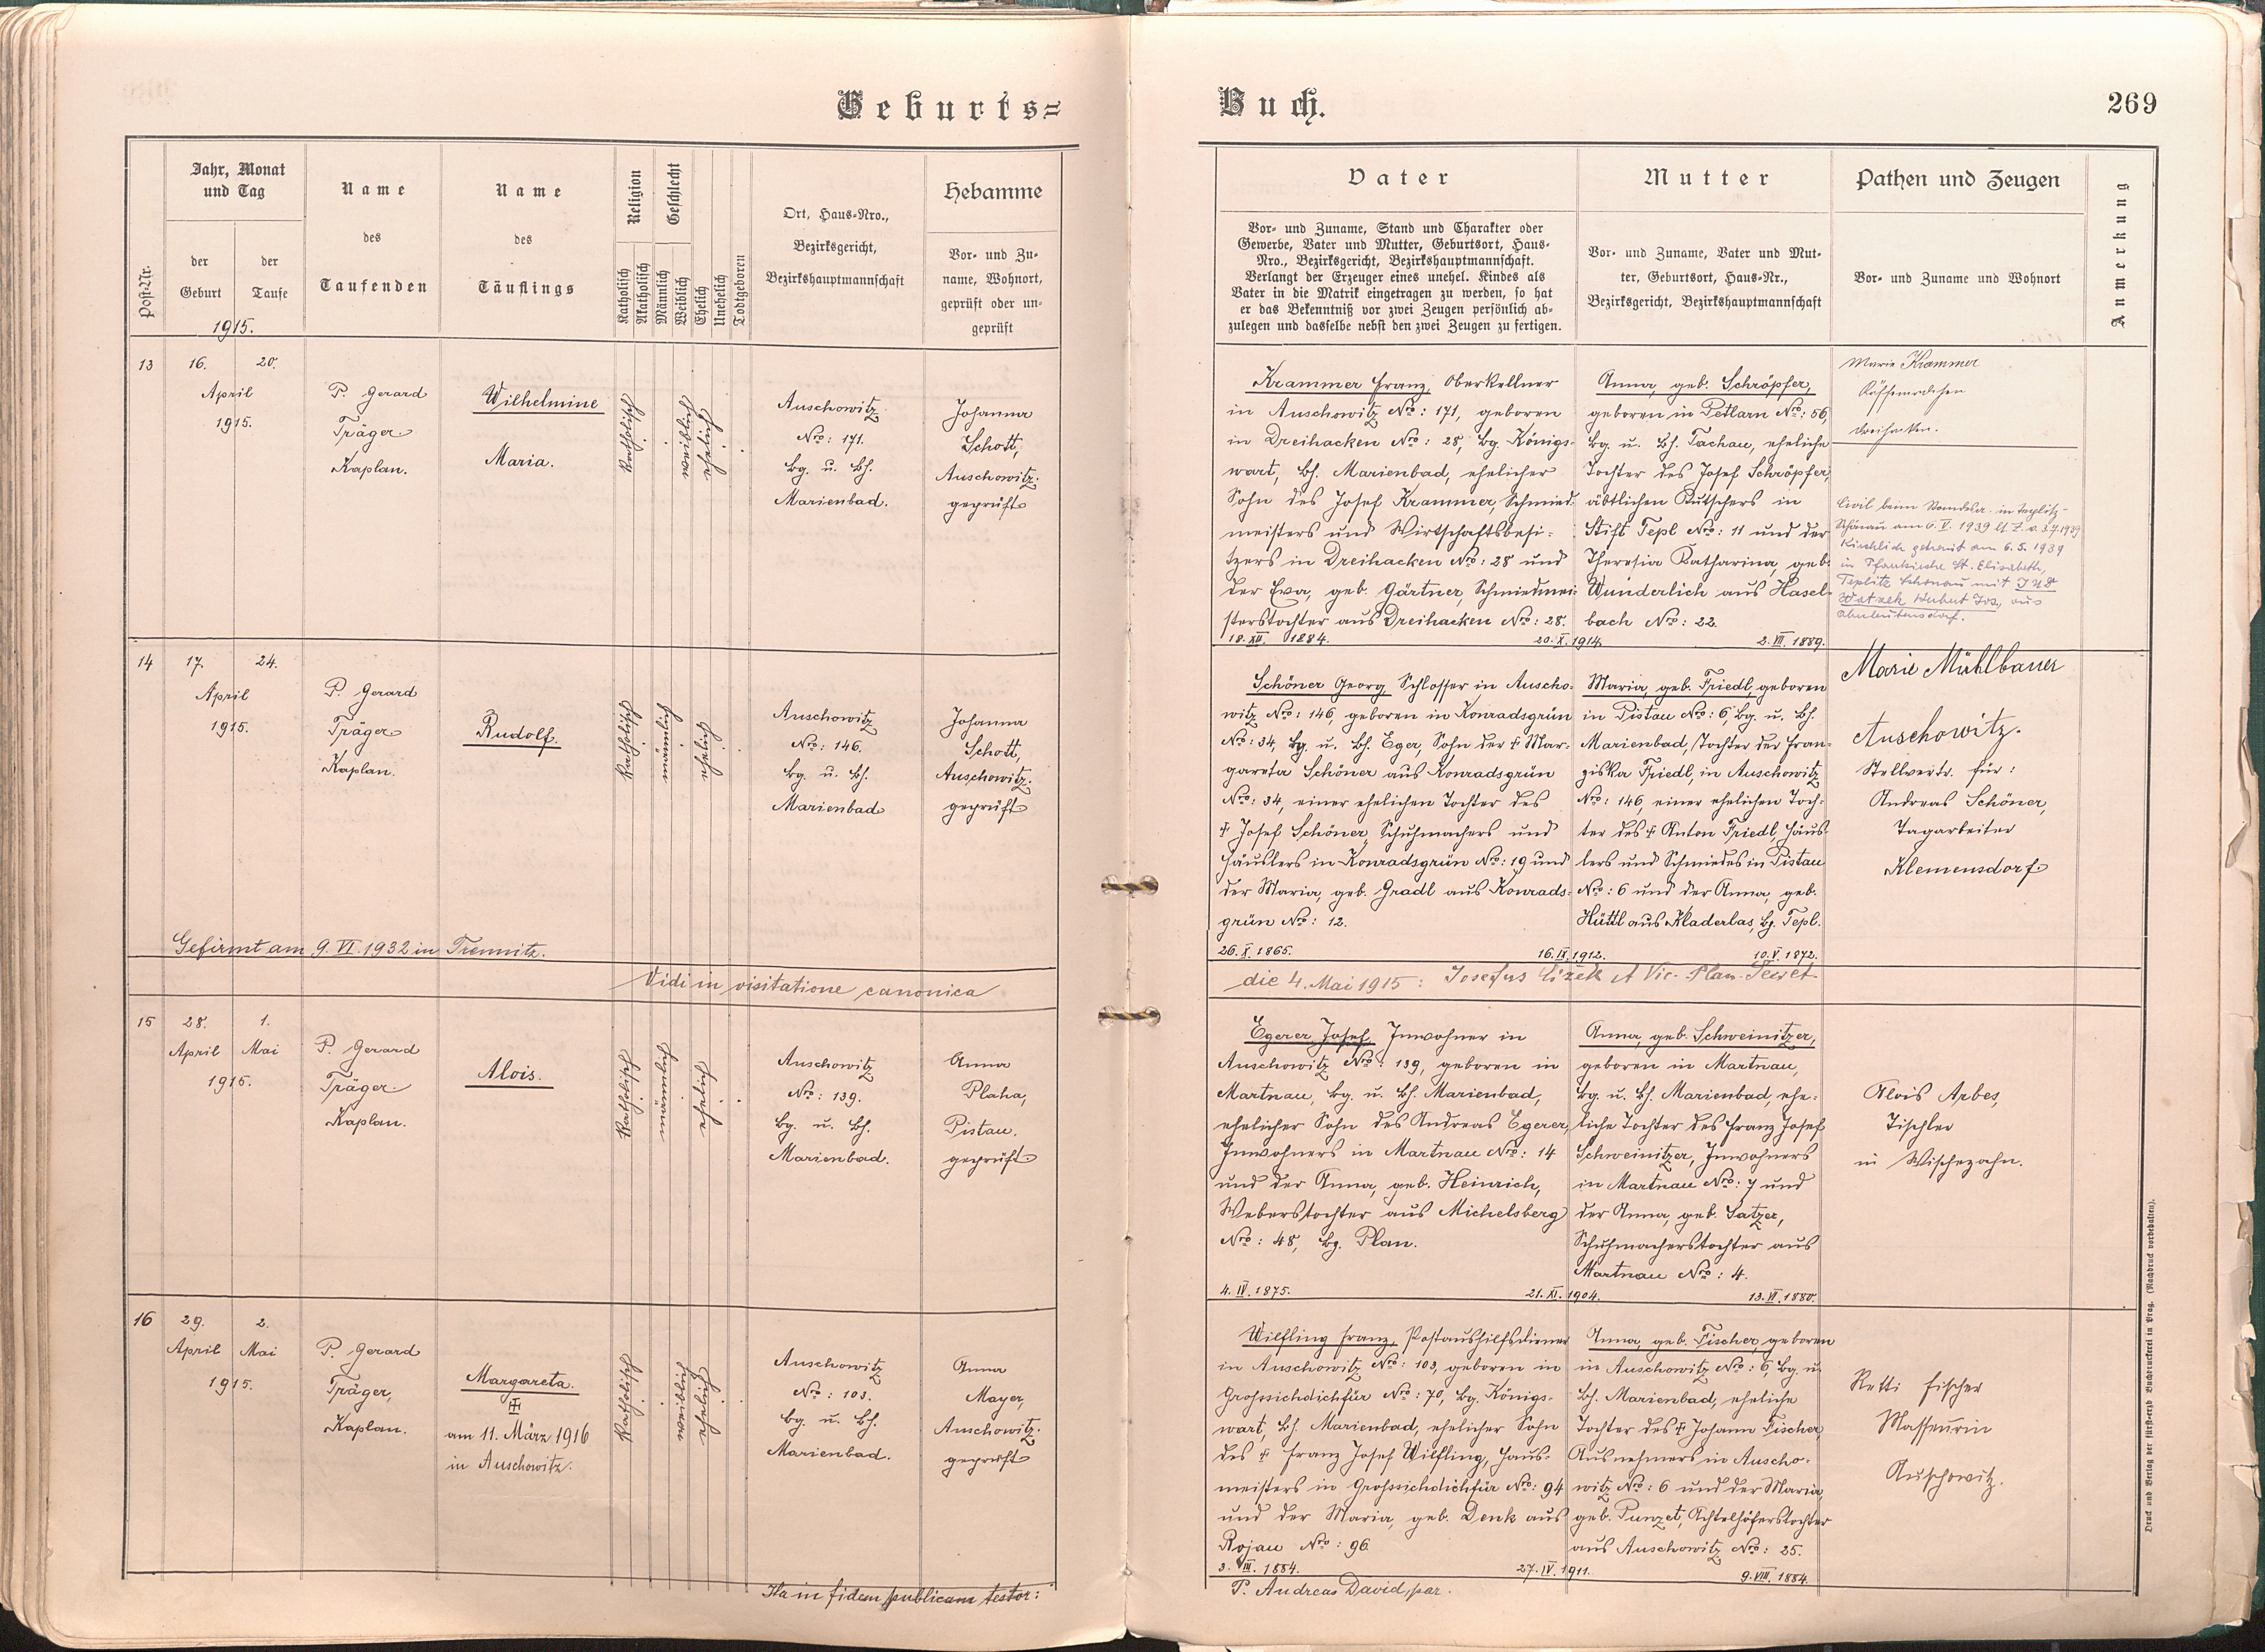 Geburts-
Buch.
269
Post-Nr.
Jahr, Monat
und Tag
der
Geburt
der
Taufe
1915.
Name
des
Taufenden
Name
des
Täuflings
Religion
Katholisch
Akatholisch
Geschlecht
Männlich
Weiblich
Ehelich
Unehelich
Todtgeboren
Ort, Haus-Nro.,
Bezirksgericht,
Bezirkshauptmannschaft
Hebamme
Vor- und Zu-
name, Wohnort,
geprüft oder un-
geprüft
Vater
Vor- und Zuname, Stand und Charakter oder
Gewerbe, Vater und Mutter, Geburtsort, Haus-
Nro., Bezirksgericht, Bezirkshauptmannschaft.
Verlangt der Erzeuger eines unehel. Kindes als
Vater in die Matrik eingetragen zu werden, so hat
er das Bekenntniß vor zwei Zeugen persönlich ab-
zulegen und dasselbe nebst den zwei Zeugen zu fertigen.
Mutter
Vor- und Zuname, Vater und Mut-
ter, Geburtsort, Haus-Nr.,
Bezirksgericht, Bezirkshauptmannschaft
Pathen und Zeugen
Vor- und Zuname und Wohnort
Anmerkung
13
16.
20.
April
1915.
P. Gerard
Träger
Kaplan.
Wilhelmine
Maria.
katholisch
weiblich
ehelich
Auschowitz
Nro: 171.
Bg. u. Bh.
Marienbad.
Johanna
Schott,
Auschowitz.
geprüft
Krammer Franz, Oberkellner
in Auschowitz Nro: 171, geboren
in Dreihacken Nro: 28, Bg. Königs-
wart, Bh. Marienbad, ehelicher
Sohn des Josef Krammer, Schmied-
meisters und Wirtschaftsbesi-
tzers in Dreihacken Nro: 28 und
der Eva, geb. Gärtner, Schmiedmei-
sterstochter aus Dreihacken Nro: 28.
18. XII. 1884.
20. X. 1914.
Anna, geb. Schröpfer,
geboren in Petlarn Nro: 56,
Bg. u. Bh. Tachau, eheliche
Tochter des Josef Schröpfer,
äbtlichen Kutschers in
Stift Tepl Nro: 11 und der
Theresia Katharina, geb.
Wunderlich aus Hasel-
bach Nro: 22.
2. VII. 1889.
Marie Krammer
Dreihacken.
Civil beim Standesa. in Teplitz-
Schönau am 6. V. 1939 lt. Z. v. 3.7.1939
Kirchlich getraut am 6.5.1939
in Pfarrkirche St. Elisabeth,
Teplitz Schönau mit JUDr
Watzek Herbert Jos., aus
14
17.
24.
April
1915.
P. Gerard
Träger
Kaplan.
Rudolf.
katholisch
männlich
ehelich
Auschowitz
Nro: 146.
Bg. u. Bh.
Marienbad
Johanna
Schott,
Auschowitz.
geprüft
Schöner Georg, Schlosser in Auscho-
witz Nro: 146, geboren in Konradsgrün
Nro: 34, Bg. u. Bh. Eger, Sohn der † Mar-
gareta Schöner aus Konradsgrün
Nro: 34, einer ehelichen Tochter des
† Josef Schöner, Schuhmachers und
Häuslers in Konradsgrün Nro: 19 und
der Maria, geb. Gradl aus Konrads-
grün Nro: 12.
26. X. 1865.
16. IX. 1912.
Maria, geb. Friedl, geboren
in Pistau Nro: 6, Bg. u. Bh.
Marienbad, Tochter der Fran-
ziska Friedl, in Auschowitz
Nro: 146, einer ehelichen Toch-
ter des † Anton Friedl, Häus-
lers und Schmiedes in Pistau
Nro: 6 und der Anna, geb.
Hüttl aus Kladerlas, Bg. Tepl.
10. V. 1872.
Marie Mühlbauer
Auschowitz.
Stellvertr. für:
Andreas Schöner,
Tagarbeiter
Klemensdorf
Gefirmt am 9. VI. 1932 in Tremnitz.
Vidi in visitatione canonica
die 4. Mai 1915: Josefus Cizek A Vic. Plan. Secret
15
28.
1.
April
Mai
1915.
P. Gerard
Träger
Kaplan.
Alois.
katholisch
männlich
ehelich
Auschowitz
Nro: 139.
Bg. u. Bh.
Marienbad.
Anna
Plaha,
Pistau.
geprüft
Egerer Josef, Inwohner in
Auschowitz Nro: 139, geboren in
Martnau, Bg. u. Bh. Marienbad,
ehelicher Sohn des Andreas Egerer,
Inwohners in Martnau Nro: 14
und der Anna, geb. Heinrich,
Weberstochter aus Michelsberg
Nro: 48, Bg. Plan.
4. IV. 1875.
21. XI. 1904.
Anna, geb. Schweinitzer,
geboren in Martnau,
Bg. u. Bh. Marienbad, ehe-
liche Tochter des Franz Josef
Schweinitzer, Inwohners
in Martnau Nro: 7 und
der Anna, geb. Satzer,
Schuhmacherstochter aus
Martnau Nro: 4.
13. VI. 1880.
Alois Arbes,
Tischler
in Wischezahn.
16
29.
2.
April
Mai
1915.
P. Gerard
Träger,
Kaplan.
Margareta.
am 11. März 1916
in Auschowitz.
katholisch
weiblich
ehelich
Auschowitz
Nro: 103.
Bg. u. Bh.
Marienbad.
Anna
Mayer,
Auschowitz.
geprüft
Wilfling Franz, Postaushilfsdiener
in Auschowitz Nro: 103, geboren in
Grossichdichfür Nro: 70, Bg. Königs-
wart, Bh. Marienbad, ehelicher Sohn
des † Franz Josef Wilfling, Haus-
meisters in Grossichdichfür Nro: 94
und der Maria, geb. Denk aus
Rojau Nro: 96
3. III. 1884.
27. IV. 1911.
Anna, geb. Fischer, geboren
in Auschowitz Nro: 6, Bg. u.
Bh. Marienbad, eheliche
Tochter des † Johann Fischer,
Ausnehmers in Auscho-
witz Nro: 6 und der Maria,
geb. Punzet, Achtelhöferstochter
aus Auschowitz Nro: 25.
9. VIII. 1884.
Retti Fischer
Masseurin
Auschowitz.
Ita in fidem publicam testor:
P. Andreas David, par.
Druck und Verlag der fürst-erzb. Buchdruckerei in Prag. (Nachdruck vorbehalten).